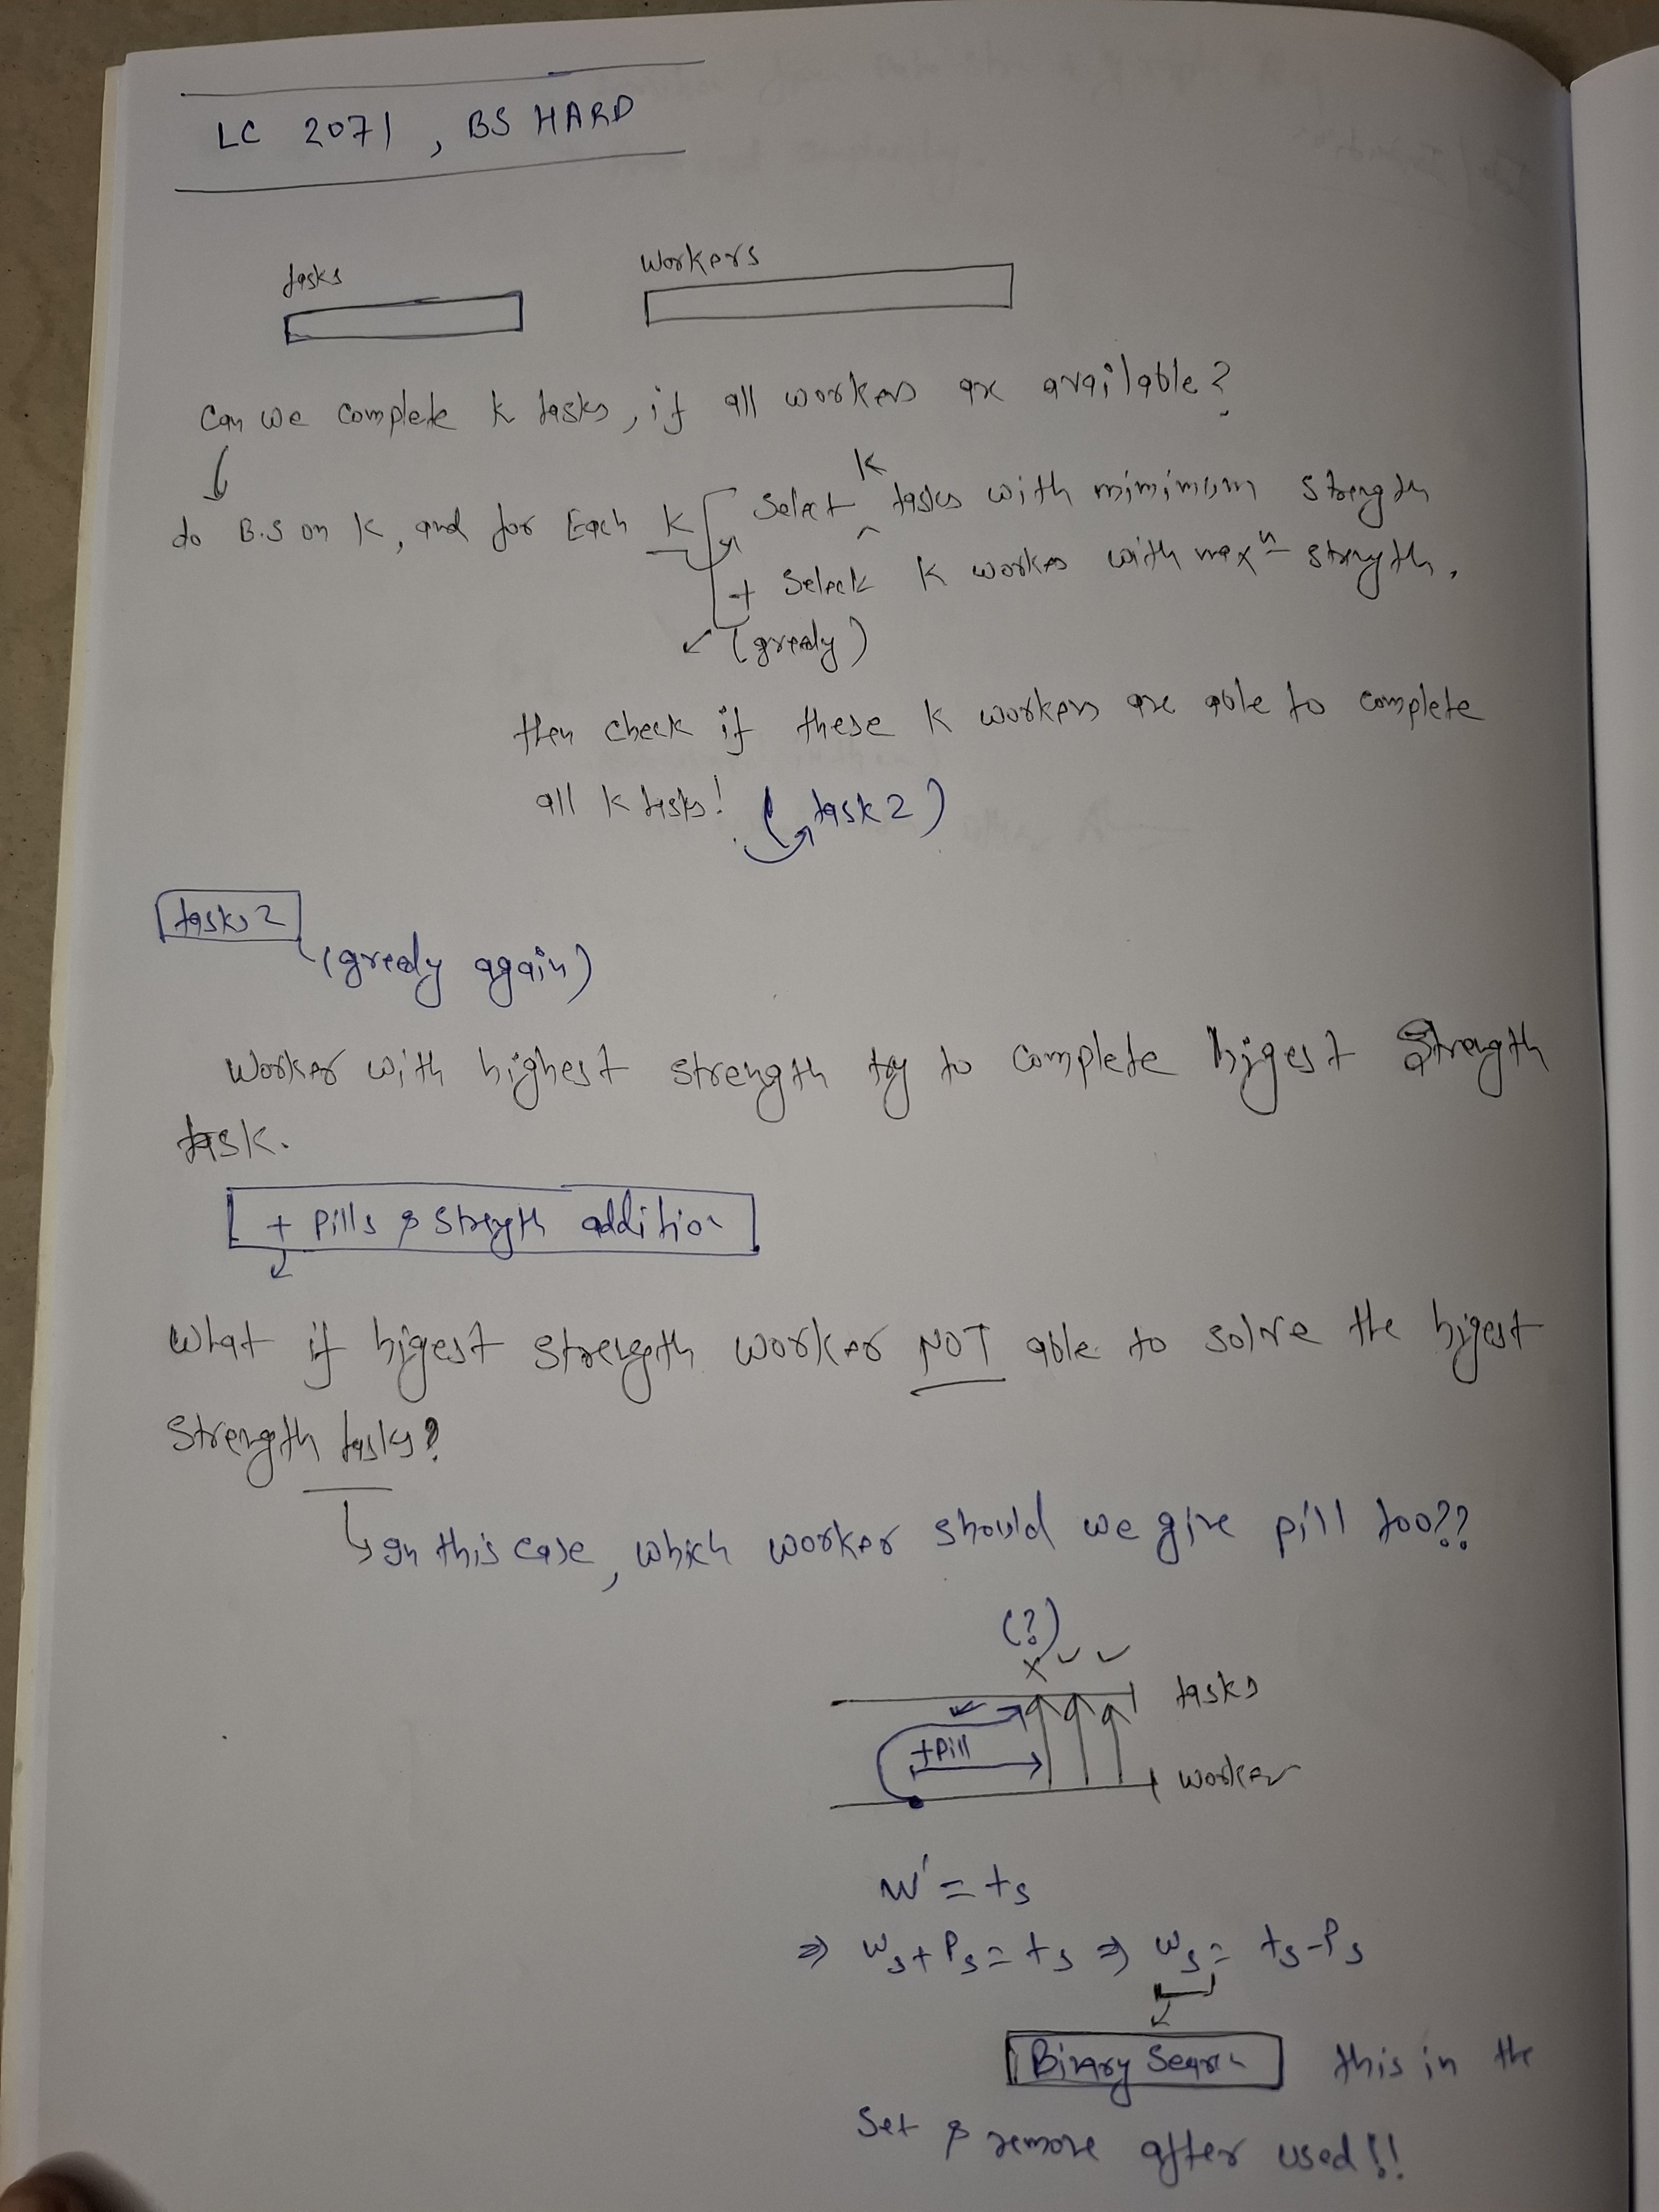 LC 2071, BS HARD
tasks
workers
Can we complete k tasks, if all workers are available?
do B.S on K, and for Each K
Select K tasks with mimimum strength
+ Select K worker with maxn strength.
(greedy)
then check if these K workers are able to complete
all K tasks! (task 2)
tasks 2
(greedy again)
Worker with highest strength try to complete higest strength
task.
+ Pills & strength addition
What if higest strength worker NOT able to solve the higest
strength tasks?
In this case, which worker should we give pill too??
(?)
x ✓ ✓
tasks
+Pill
worker
W' = ts
⇒ Ws + Ps = ts ⇒ Ws = ts - Ps
Binary Search this in the
Set & remove after used!!